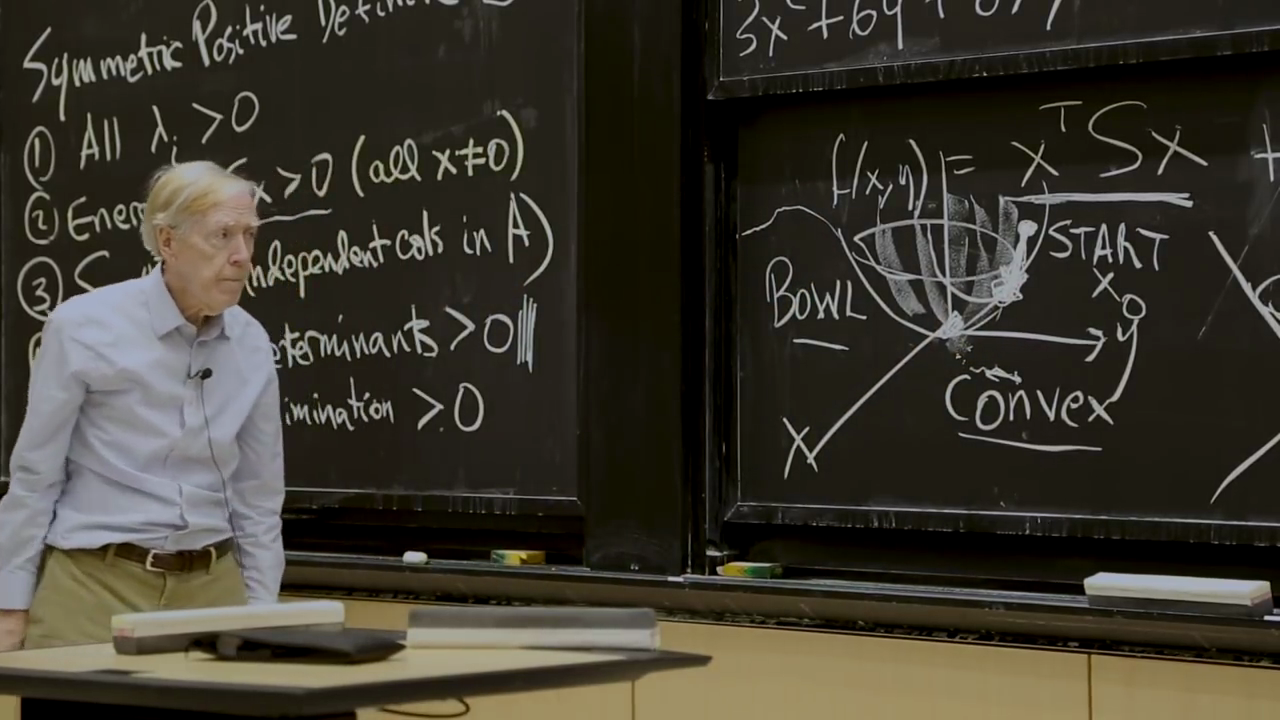 Symmetric Positive Definite
① All λi >0
② Ener x >0 (all x≠0)
③ S independent cols in A)
eterminants >0
imination >0
3x² + 6y
f(x,y) = xᵀSx +
START
x0
BOWL
y
Convex
X